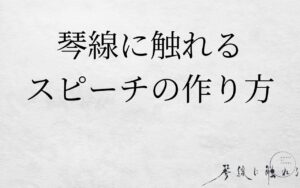 琴線に触れる
スピーチの作り方
琴線に触れる